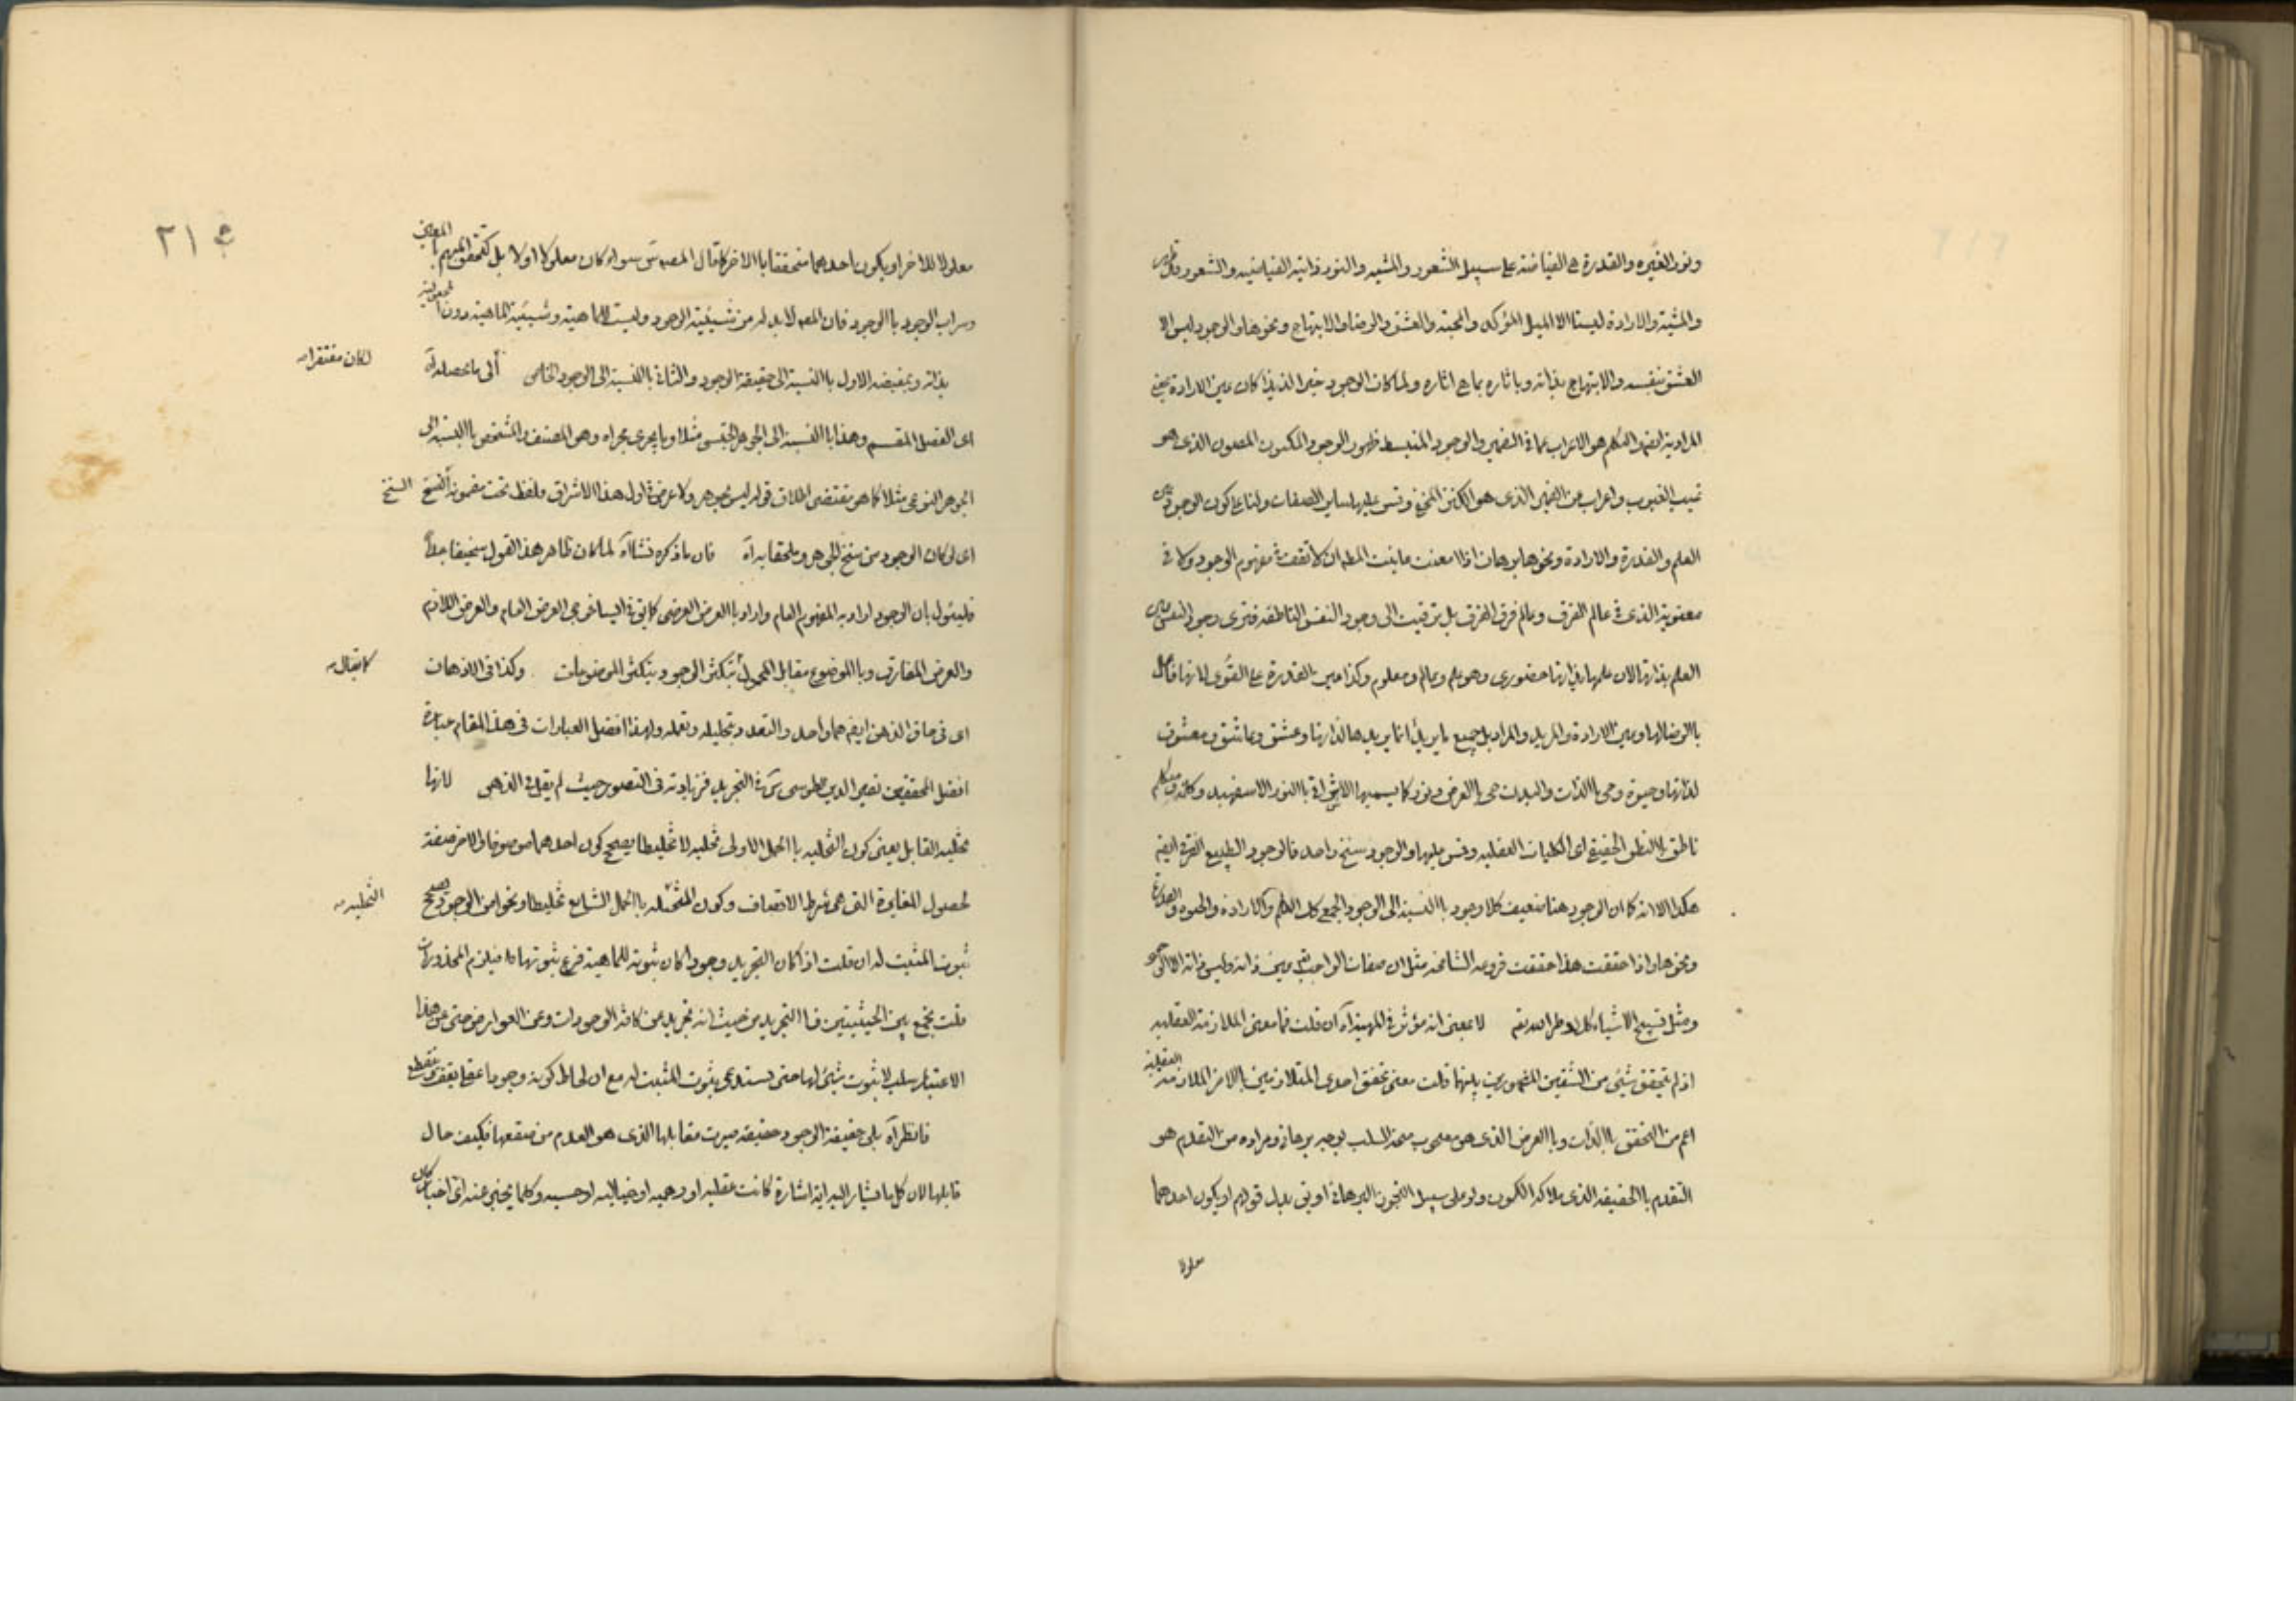 ونور لغيره والقدرة هي الفياضية على سبيل الشعور والمشية والنور ذاتية الفياضية والشعور وقد
والمشية والارادة ليستا الا الميل المؤكد والمحبة والعشق والرضا والابتهاج ونحوها والوجود ليس الا
العشق بنفسه والابتهاج بذاته وباثاره بما هي اثاره ولما كان الوجود خيرا لذيذا كان عين الارادة
المرادية ايضا والتكلم هو الاعراب عما في الضمير والوجود المنبسط ظهور الوجود المكنون المصون الذي هو
غيب الغيوب واعراب عن الضمير الذي هو الكنز المخفي وقس عليها ساير الصفات ولنا على كون الوجود عين
العلم والقدرة والارادة ونحوها برهان اذا امعنت ما بنت المط ان لا تقف في مفهوم الوجود ولا في
معنونه الذي في عالم الفرق وعالم فرق الفرق بل ترقيت الى وجود النفس الناطقة فترى وجود النفس عين
العلم بذاتها لان علمها بذاتها حضوري وهو علم وعالم ومعلوم وكذا عين القدرة على القوى لانها فاعل
بالرضا لها وعين الارادة والمريد والمراد بل جميع ما يريد انما يريدها لذاتها وعشق وعاشق ومعشوق
لذاتها وحيوة وحي بالذات والبدن حي بالعرض ونور كما يسميها الاشراقي بالنور الاسفهبد وكلمة ومتكلم
ناطق بالنطق الحقيقي اي الكليات العقلية وقس عليها والوجود سنخ واحد فالوجود الطبيعي الفرقي ايضا
هكذا الا انه كما ان الوجود هنا ضعيف كلا وجود بالنسبة الى الوجود الجمعي كك العلم والارادة والحيوة والقدرة
ونحوها واذا حققت هذا حققت فروعه الشامخة مثل ان صفات الواجب تعالى عين ذاته وليس ذاته
ومثل تسبيح الاشياء كلا وطرا لله تعالى لا بمعنى انه مؤثر في المهية آه ان قلت فما معنى الملازمة العقلية
اذ لم يتحقق شئ من الشقين المتصورين بينهما قلت معنى تحقق احدى المتلازمين بالاخر الملازمة العقلية
اعم من التحقق بالذات وبالعرض الذي هو مصحوب صحة السلب بوجه برهاني ومراده من التقدم هو
التقدم بالحقيقة الذي ملاكه الكون ولو على سبيل التجوز البرهاني او بق بدل قولهم او يكون احدهما
معلولا
٢١
معلولا للاخر او يكون احدهما متحققا بالاخر كما قال المصنف سواء كان معلولا او لا بل كتحقق المبهم بالمعين
وسراب الوجود بالوجود فان المعلول لابد له من شيئية الوجود وليست للماهية وشيئية الماهية دون
بذاته وبمفيضه الاول بالنسبة الى حقيقة الوجود والثاني بالنسبة الى الوجود الخاص الى ما يحصله آه
لكان مفتقرا
اي الفصل المقسم وهذا بالنسبة الى الجوهر الجنسي مثلا وما يجري مجراه وهو المصنف والمشخص بالنسبة الى
الجوهر النوعي مثلا كما هو مقتضى اطلاق قوله ليس بجوهر ولا عرض في اول هذا الاشراق ولفظ تحت مضمونه السنخ
السنخ
اي لو كان الوجود من سنخ الجوهر وملحقا به آه فان ما ذكره نشأ آه لما كان ظاهر هذا القول سخيفا جدا
فليئول بان الوجود اراد به المفهوم العام واراد بالعرض العرضي كما بق في ايساغوجي العرض العام والعرض اللازم
والعرض المفارق وبالموضوع مقابل المحمول يتكثر الوجود بتكثر الموضوعات وكذا في الاذهان
كما يقال
اي في حاق الذهن ايضا هما واحد والتعدد بتحليله وتعمله ولهذا افضل العبارات في هذا المقام عبارة
افضل المحققين نصير الدين طوسي في التجريد فزيادته في التصور حيث لم يقل في الذهن لانها
تخلية القابل يعني كون التخلية بالحمل الاولى تخلية لا تخليطا يصحح كون احدهما موصوفا والاخر صفة
لحصول المغايرة التي هي شرط الاتصاف وكون التخلية بالحمل الشايع تخليطا ونحوا من الوجود يصحح
التخلية
ثبوت المثبت له ان قلت اذا كان التجريد وجودا كان ثبوته للماهية فرع ثبوتها فيلزم المحذورات
قلت نجمع بين الحيثيتين فالتجريد من حيث انه تجريد عن كافة الوجودات وعن العوارض حتى عن هذا
الاعتبار سلب لا ثبوت شئ لها حتى يستدعي ثبوت المثبت له مع ان لحاظ كونه وجودا عقليا يقف
فانظر آه بلى حقيقة الوجود حقيقة صيرت مقابلها الذي هو العدم من صقعها فكيف حال
قابلها لان كل ما يشار اليه اية اشارة كانت عقلية او وهمية او خيالية او حسية وكلما يخبر عنه اي اخبار كان